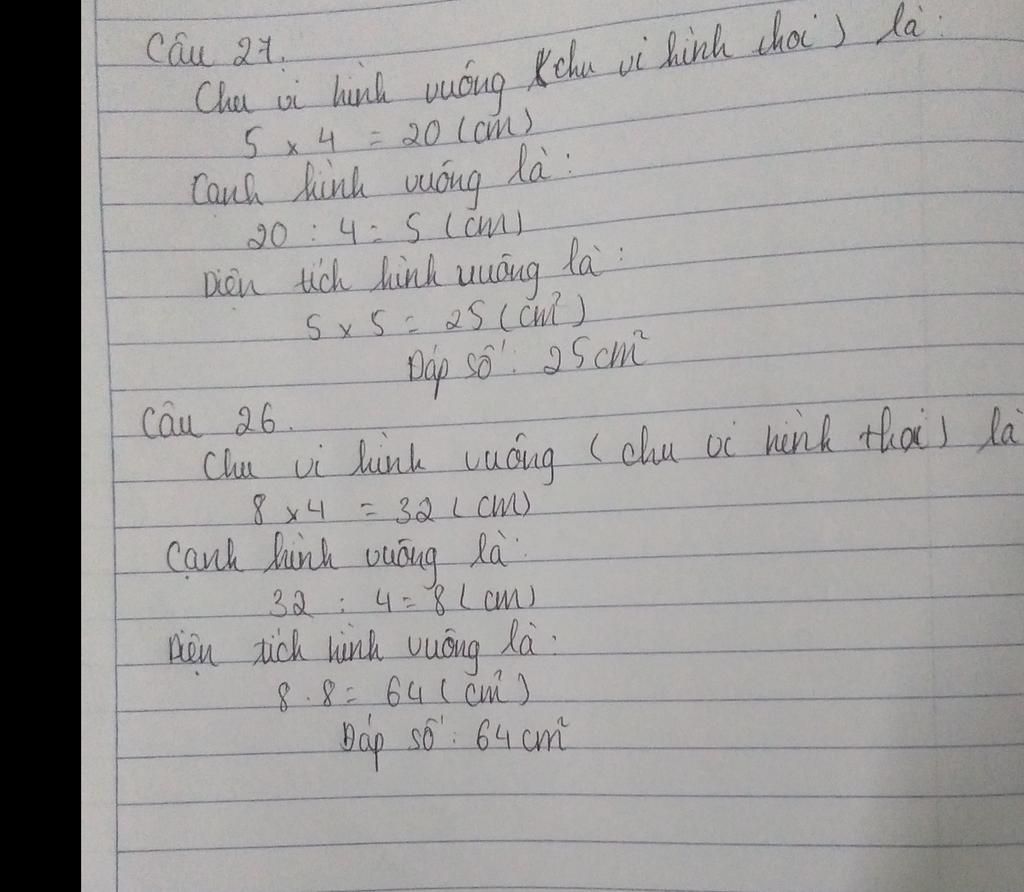 Câu 27.
Chu vi hình vuông (chu vi hình thoi) là:
5 x 4 = 20 (cm)
Cạnh hình vuông là:
20 : 4 = 5 (cm)
Diện tích hình vuông là:
5 x 5 = 25 (cm²)
Đáp số: 25 cm²
Câu 26.
Chu vi hình vuông (chu vi hình thoi) là
8 x 4 = 32 (cm)
Cạnh hình vuông là:
32 : 4 = 8 (cm)
Diện tích hình vuông là:
8 . 8 = 64 (cm²)
Đáp số: 64 cm²